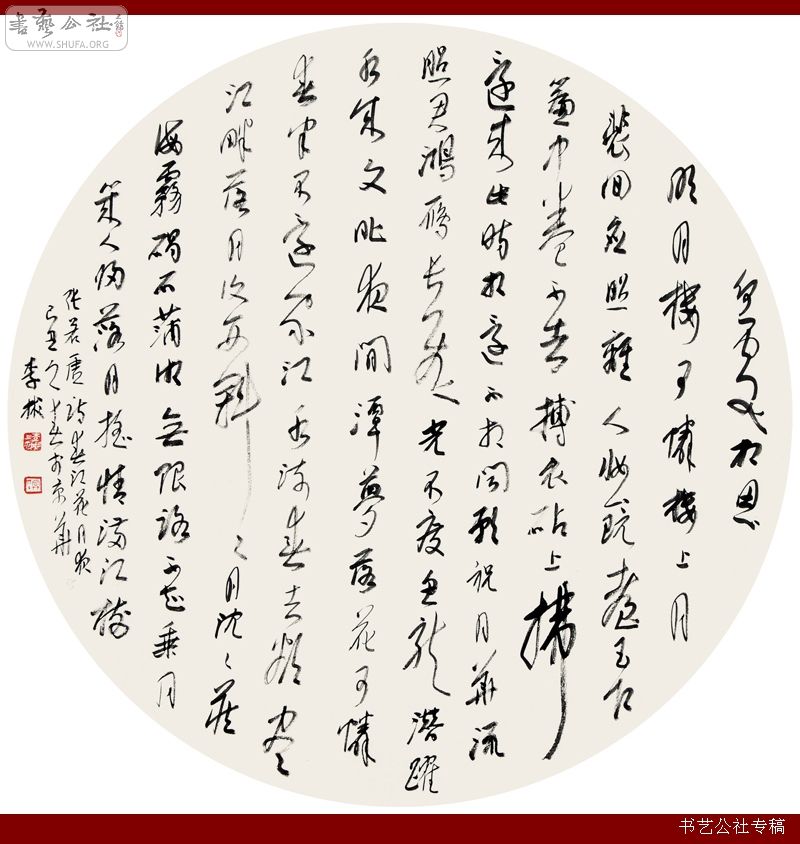 書藝公社
WWW.SHUFA.ORG
何處相思
明月樓可憐樓上月
裴回應照離人妝鏡臺玉戶
簾中卷不去搗衣砧上拂
還來此時相望不相聞願逐月華流
照君鴻雁長飛光不度魚龍潛躍
水成文昨夜閒潭夢落花可憐
春半不還家江水流春去欲盡
江畔落月復西斜々月沈々藏
海霧碣石瀟湘無限路不知乘月
幾人歸落月搖情滿江樹
張若虛詩春江花月夜
己丑之春於京華
李彬
书艺公社专稿